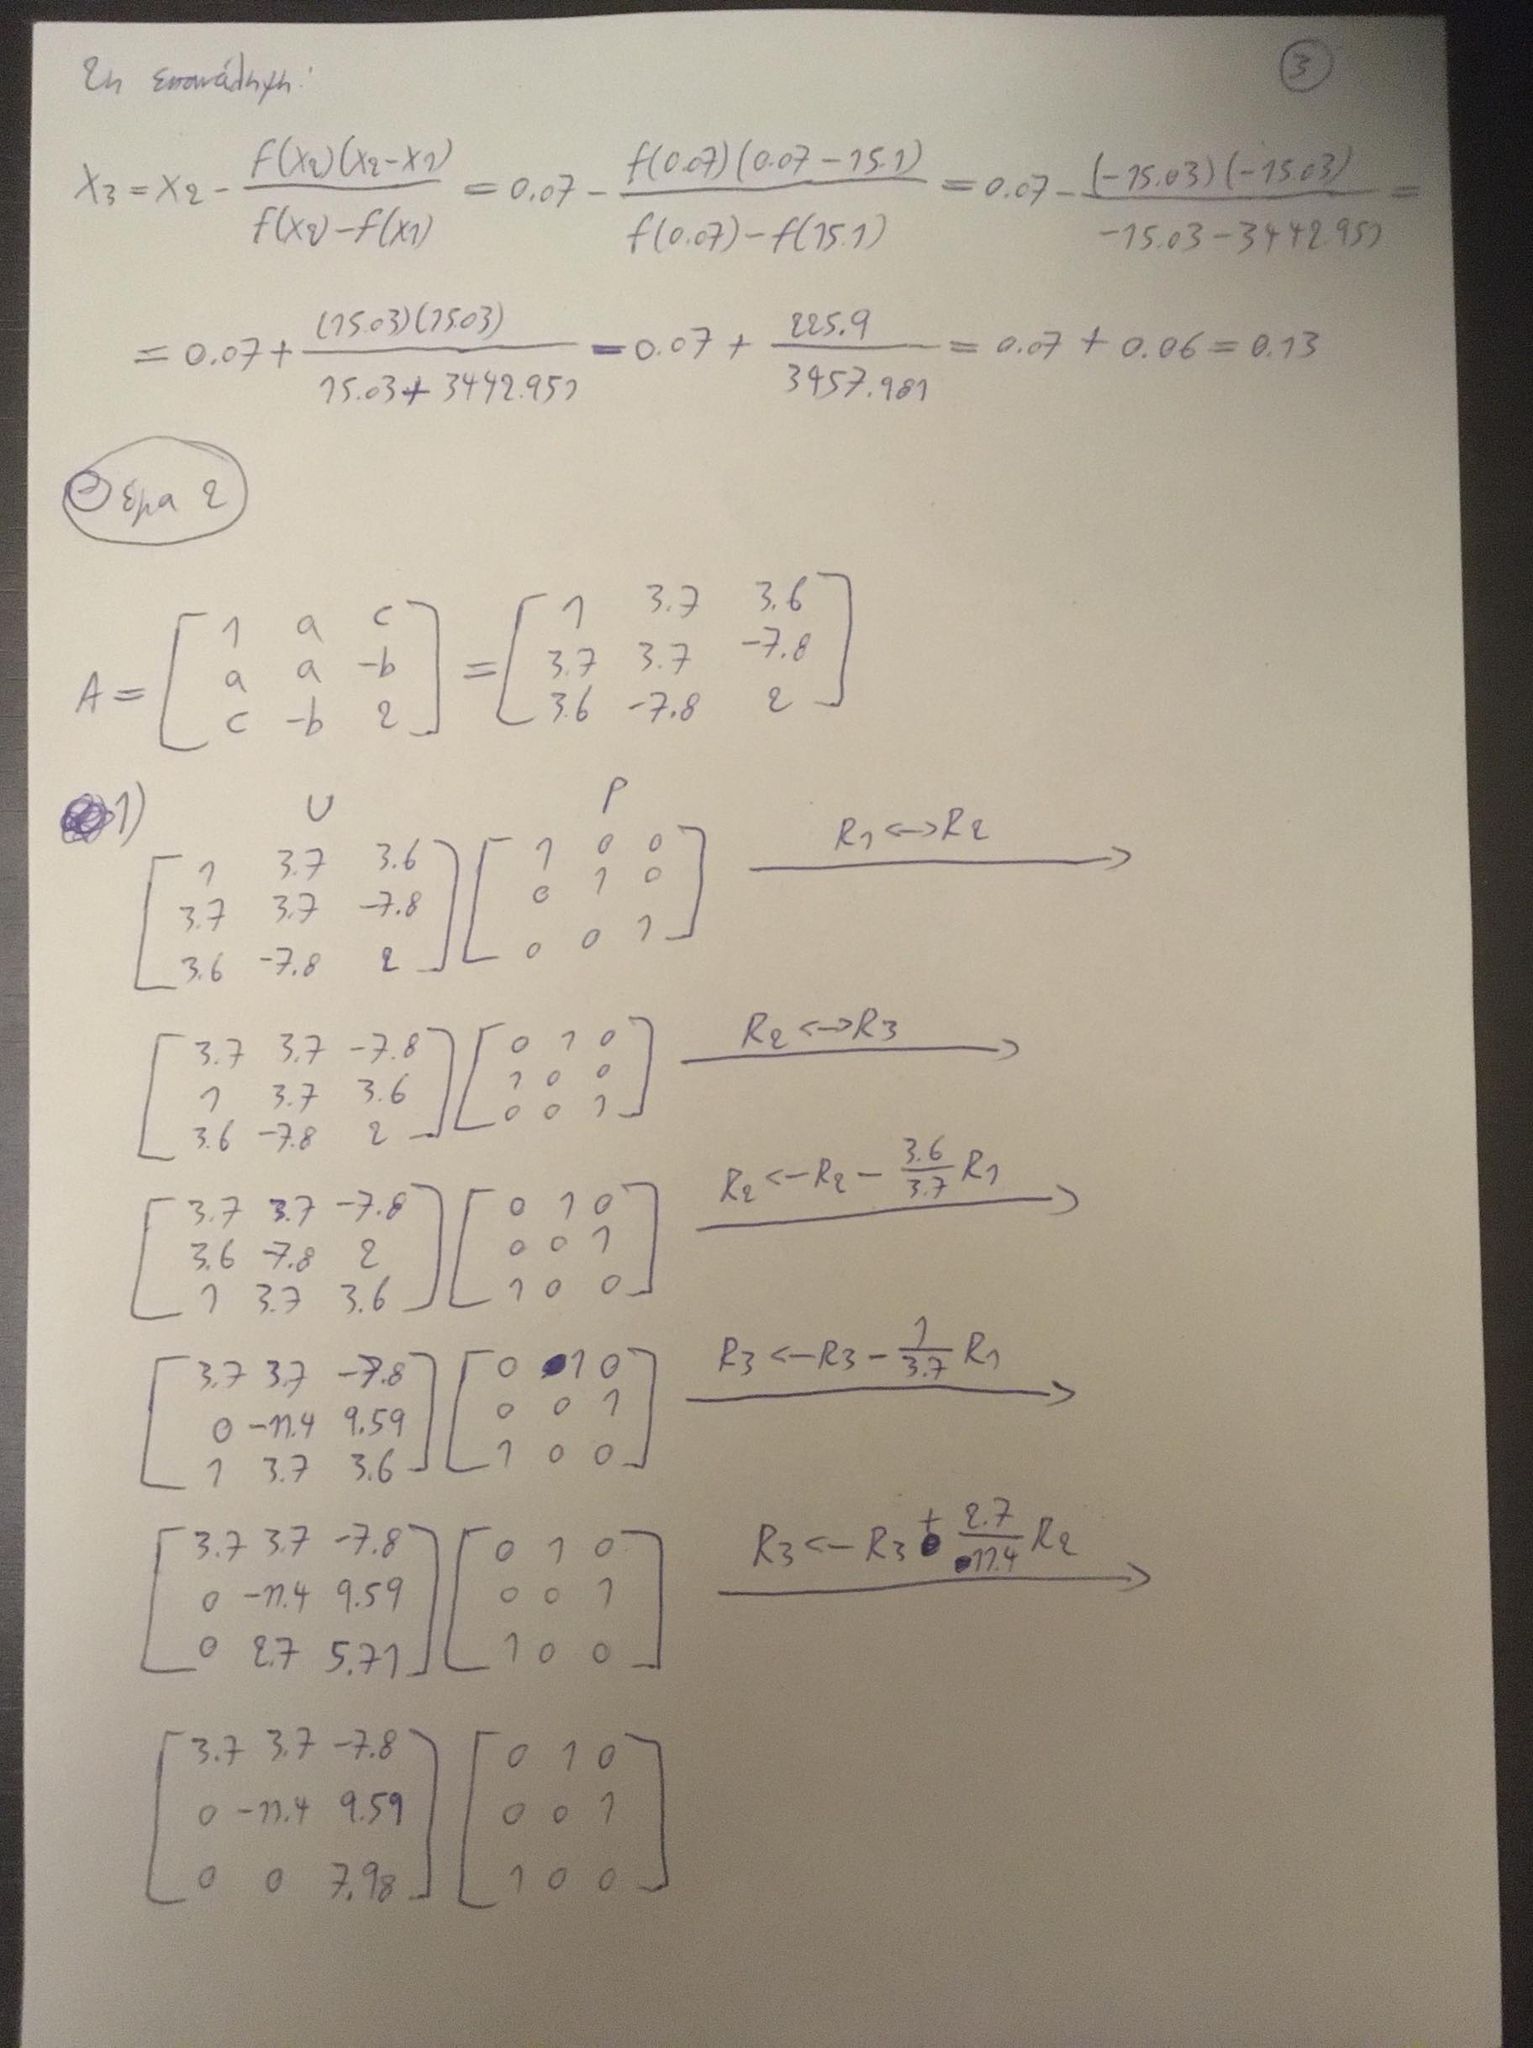 2η επανάληψη:
3
x₃ = x₂ - f(x₂)(x₂-x₁) / f(x₂)-f(x₁) = 0.07 - f(0.07)(0.07-15.1) / f(0.07)-f(15.1) = 0.07 - (-15.03)(-15.03) / -15.03-3442.951 =
= 0.07 + (15.03)(15.03) / 15.03+3442.951 = 0.07 + 225.9 / 3457.981 = 0.07 + 0.06 = 0.13
Θέμα 2
A = [1 a c; a a -b; c -b 2] = [1 3.7 3.6; 3.7 3.7 -7.8; 3.6 -7.8 2]
1) U P
[1 3.7 3.6; 3.7 3.7 -7.8; 3.6 -7.8 2] [1 0 0; 0 1 0; 0 0 1] R₁<->R₂ →
[3.7 3.7 -7.8; 1 3.7 3.6; 3.6 -7.8 2] [0 1 0; 1 0 0; 0 0 1] R₂<->R₃ →
[3.7 3.7 -7.8; 3.6 -7.8 2; 1 3.7 3.6] [0 1 0; 0 0 1; 1 0 0] R₂<-R₂ - 3.6/3.7 R₁ →
[3.7 3.7 -7.8; 0 -11.4 9.59; 1 3.7 3.6] [0 1 0; 0 0 1; 1 0 0] R₃<-R₃ - 1/3.7 R₁ →
[3.7 3.7 -7.8; 0 -11.4 9.59; 0 2.7 5.71] [0 1 0; 0 0 1; 1 0 0] R₃<-R₃ + 2.7/11.4 R₂ →
[3.7 3.7 -7.8; 0 -11.4 9.59; 0 0 7.98] [0 1 0; 0 0 1; 1 0 0]